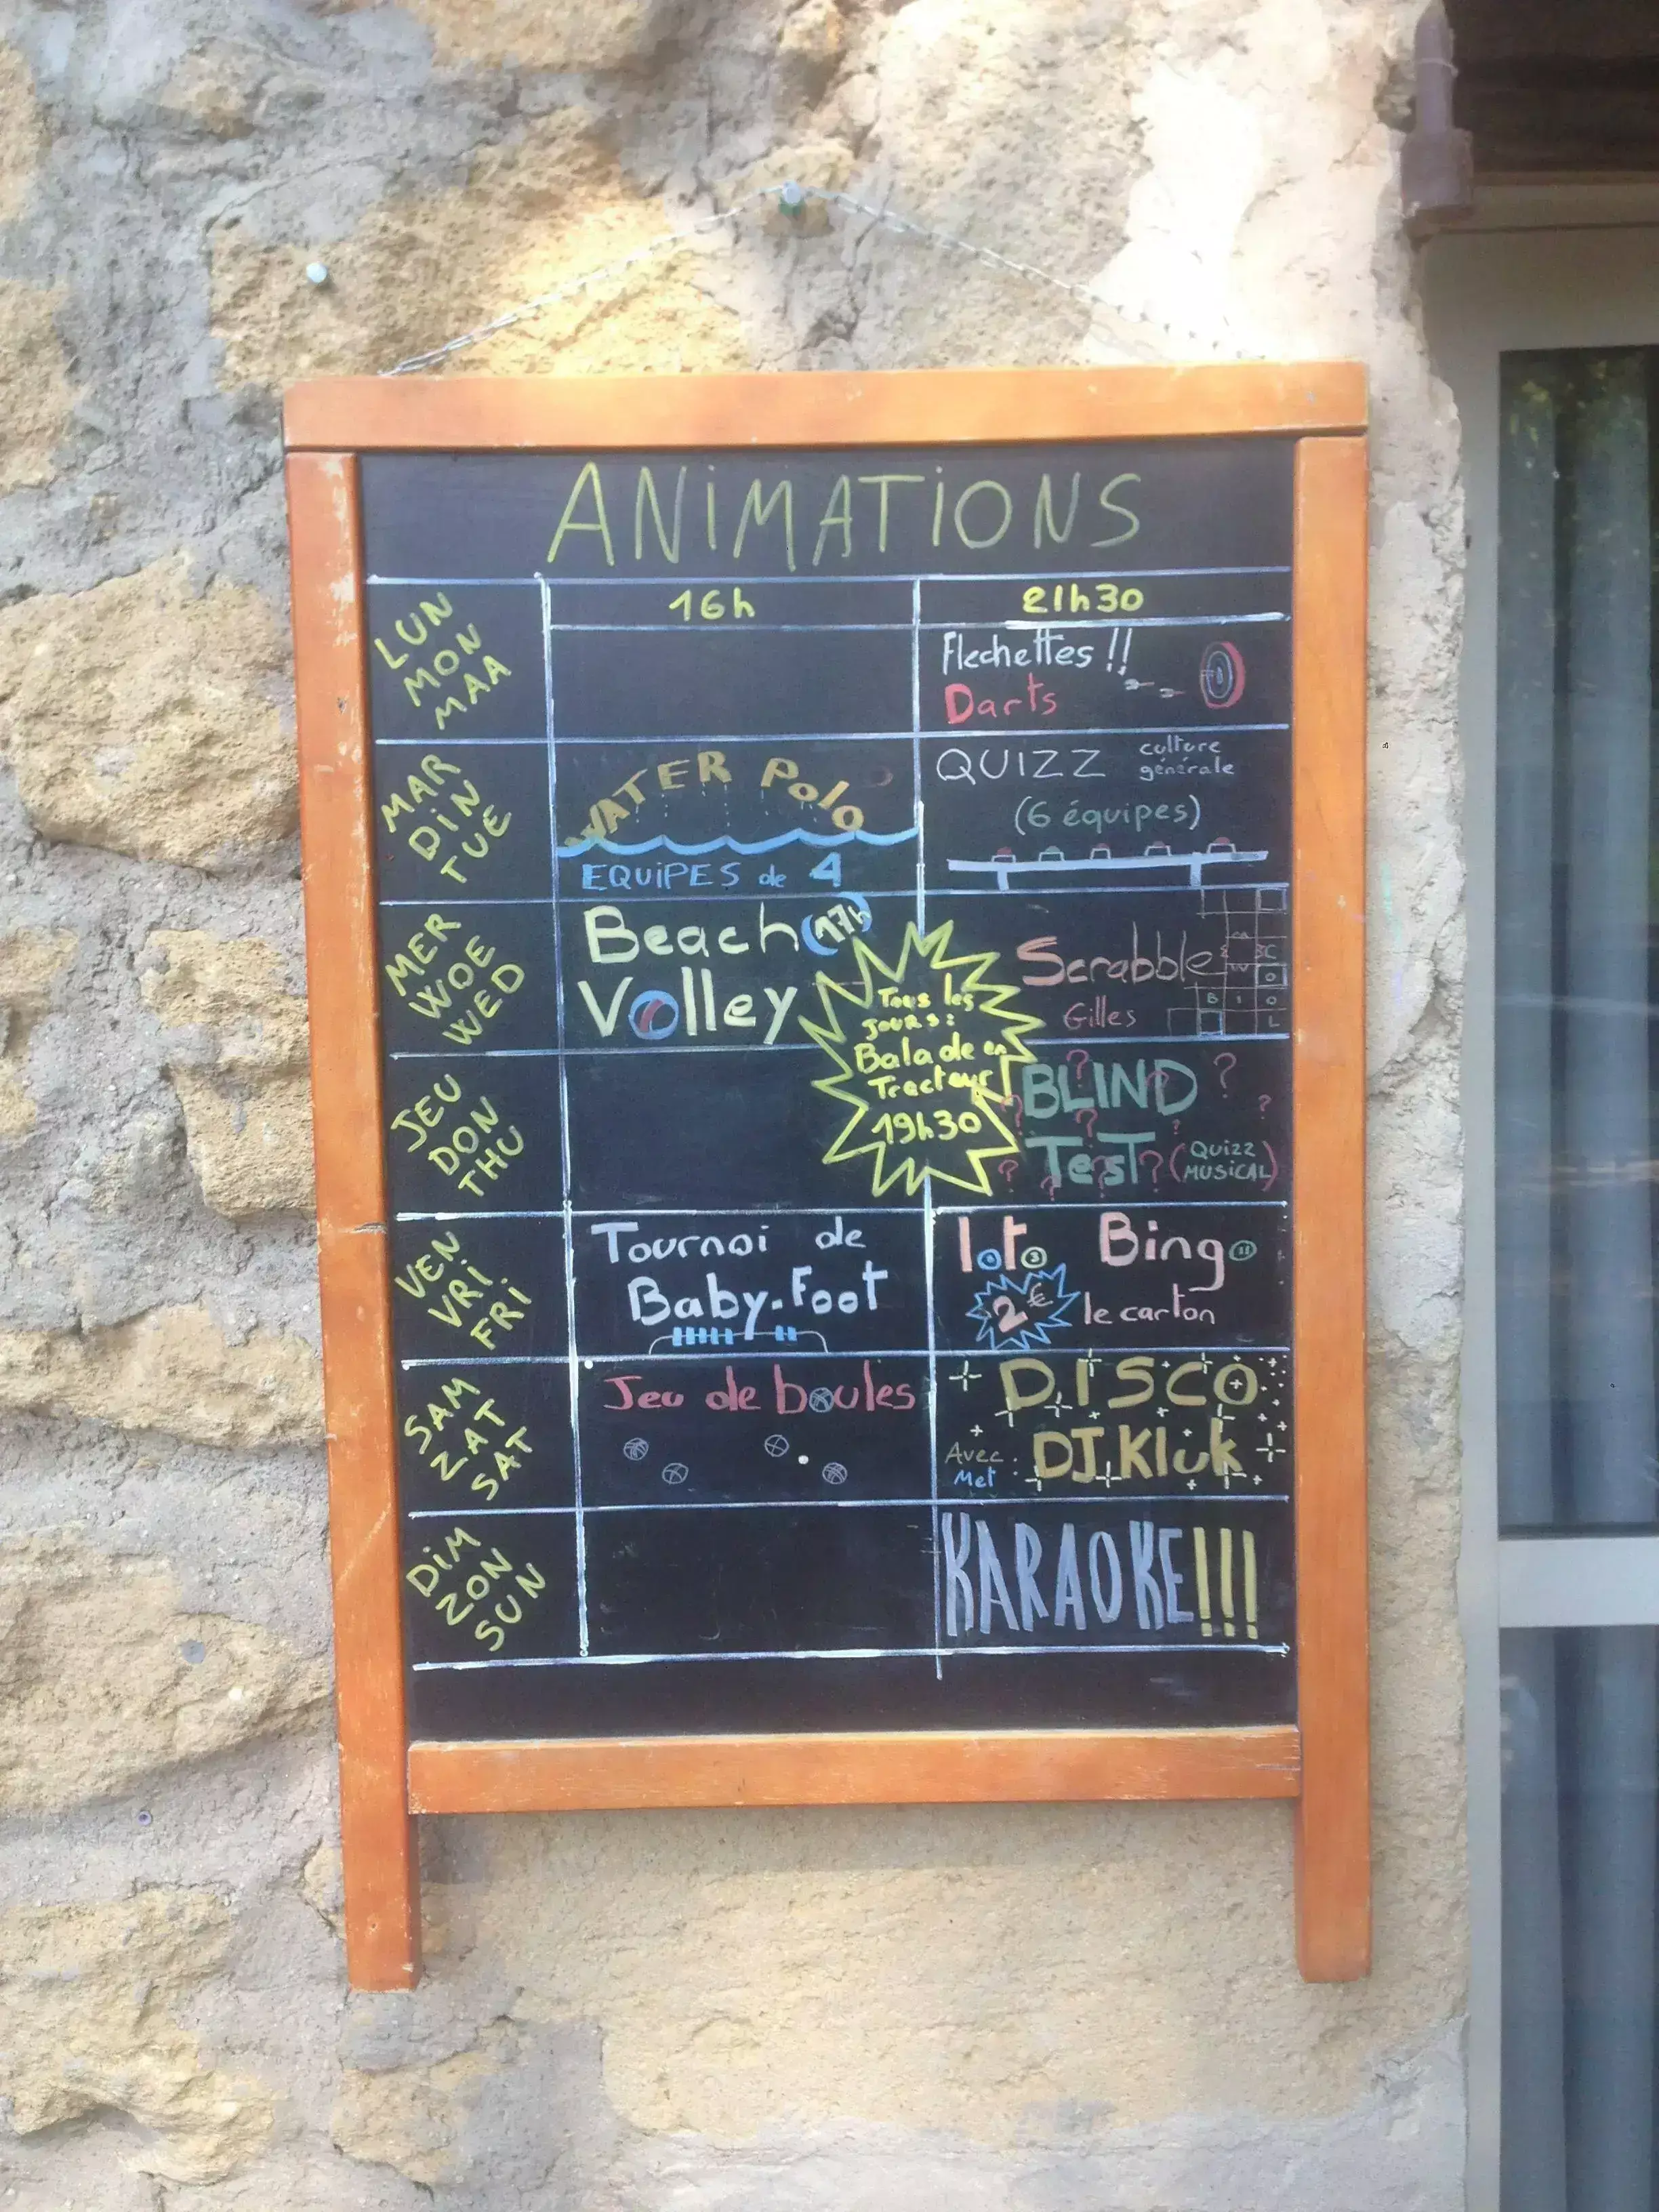 ANiMATiONS
16h
21h30
LUN
MON
MAA
Flechettes !!
Darts
MAR
DiN
TUE
WATER Polo
EQUiPES de 4
QUIZZ culture
générale
(6 équipes)
MER
WOE
WED
Beach (17h)
Volley
Scrabble
Gilles
Tous les
jours :
Balade en
Tracteur
19h30
JEU
DON
THU
BLIND ?
TesT ? (QUizz
MUSiCAL)
VEN
VRi
FRi
Tournoi de
Baby-Foot
loto Bingo
2€ le carton
SAM
ZAT
SAT
Jeu de boules
DISCO
Avec :
Met
DJ.Kluk
DiM
ZON
SUN
KARAOKE!!!